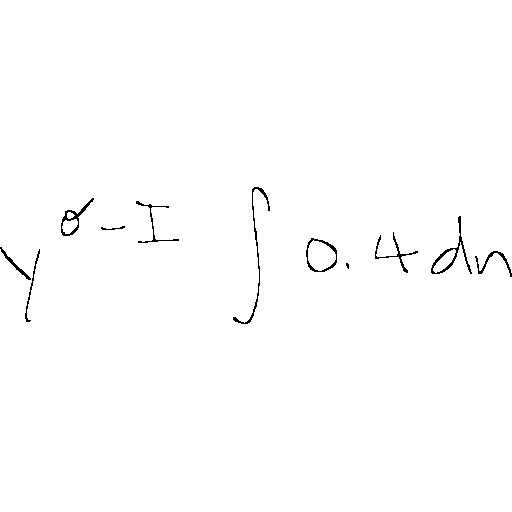 y^{σ-I} ∫ 0.4 dn